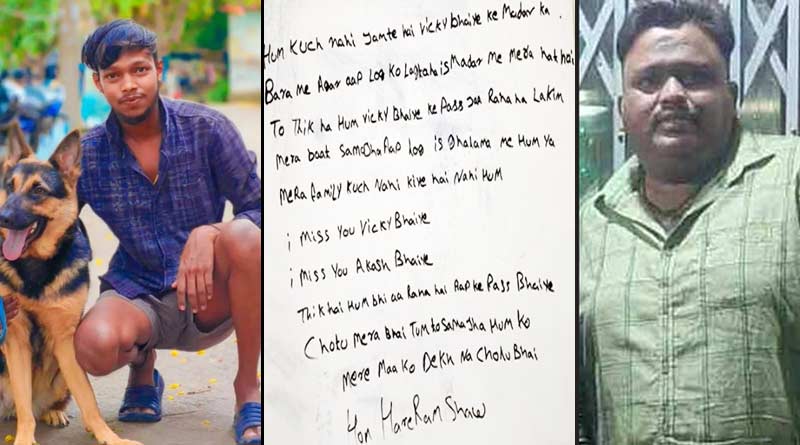 Hum Kuch nahi Jamte hai Vicky Bhaiye ke Madar ka.
Bara me Agar aap log Ko Lagtaha is Madar me mera hat hai
To Thik ha Hum Vicky Bhaiye ke Pass Jaa Raha ha Lakim
mera baat Samdha aap log is Jhalama me Hum Ya
mera family Kuch Nahi Kiye hai Nahi Hum
i miss You Vicky Bhaiye
i miss You Akash Bhaiye
Thik hai Hum Bhi aa Raha hai Aap ke Pass Bhaiye
Chotu mera Bhai Tum to Samajha Hum Ko
mere Maa Ko Dekh Na Chotu Bhai
Hareram Shaw